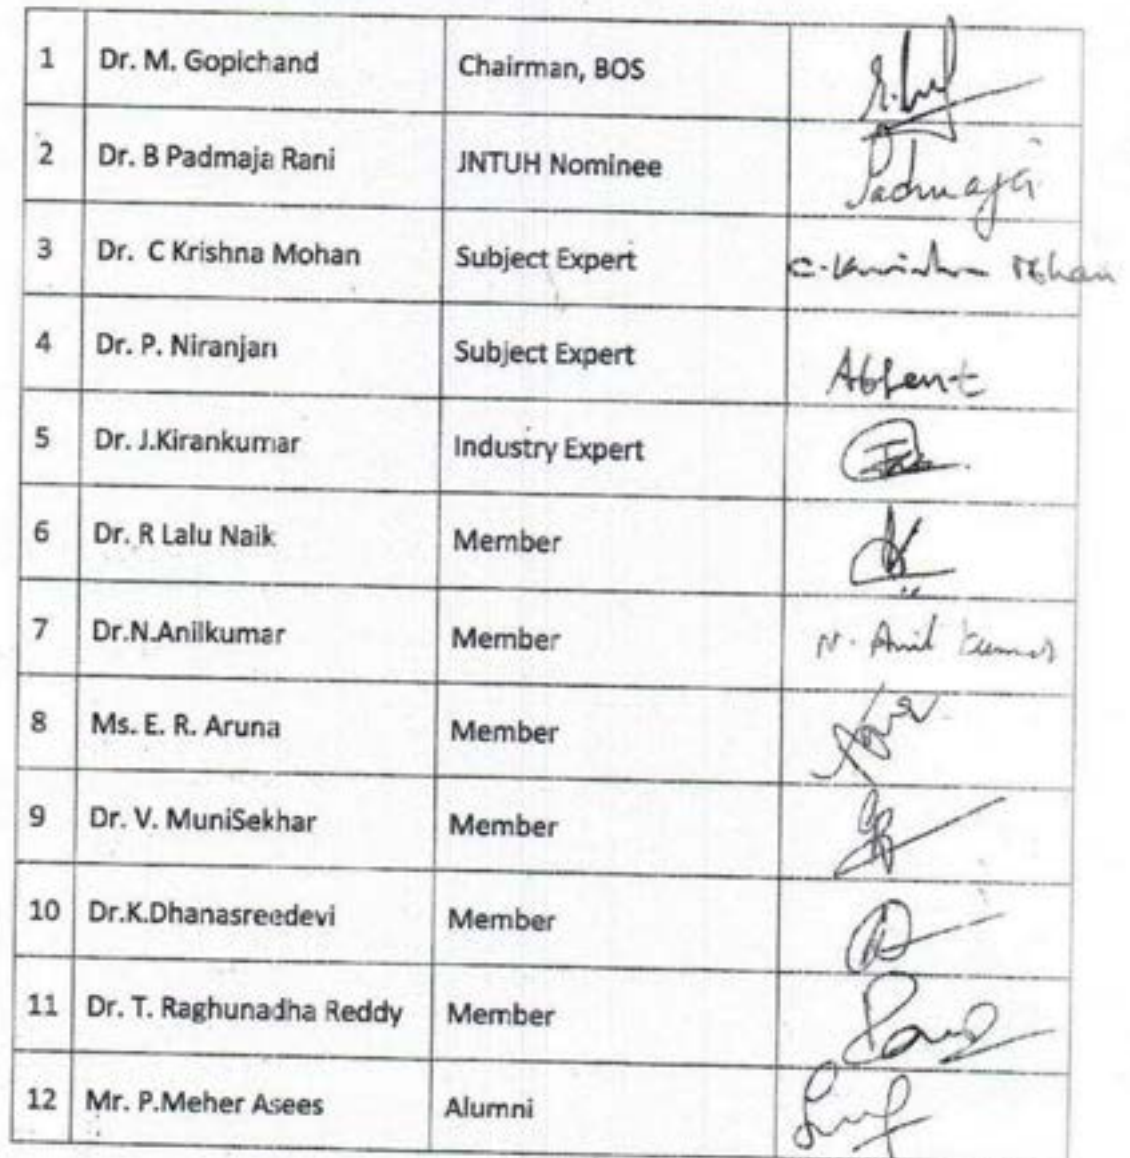 1 Dr. M. Gopichand Chairman, BOS
2 Dr. B Padmaja Rani JNTUH Nominee Padmaja
3 Dr. C Krishna Mohan Subject Expert C. Krishna Mohan
4 Dr. P. Niranjan Subject Expert Absent
5 Dr. J.Kirankumar Industry Expert
6 Dr. R Lalu Naik Member
7 Dr.N.Anilkumar Member N. Anil Kumar
8 Ms. E. R. Aruna Member
9 Dr. V. MuniSekhar Member
10 Dr.K.Dhanasreedevi Member
11 Dr. T. Raghunadha Reddy Member
12 Mr. P.Meher Asees Alumni